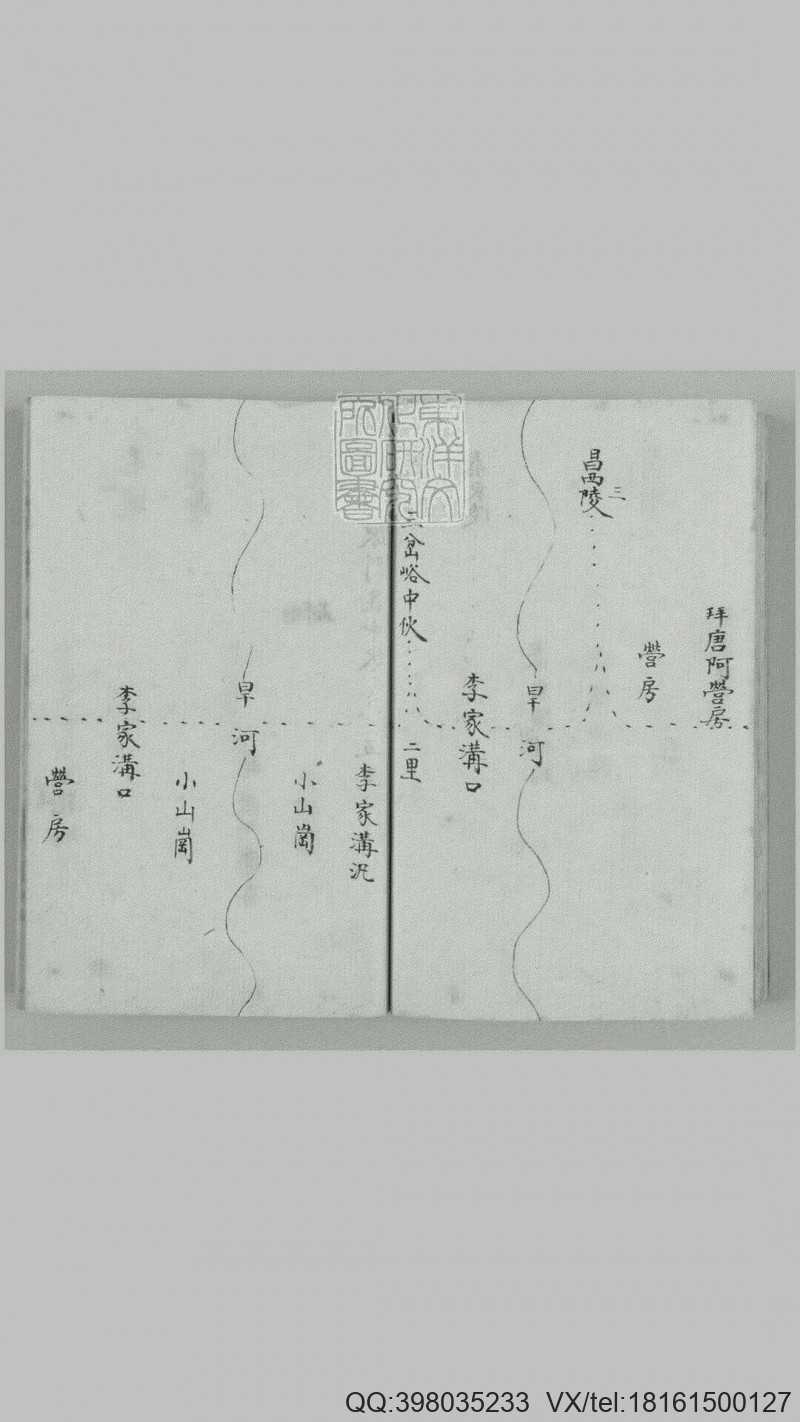 拜唐阿營房
營房
昌西陵
三
旱河
李家溝口
三岔峪中伙
二里
李家溝沉
小山崗
旱河
小山崗
李家溝口
營房
東洋文
化研究
所圖書
QQ:398035233 VX/tel:18161500127